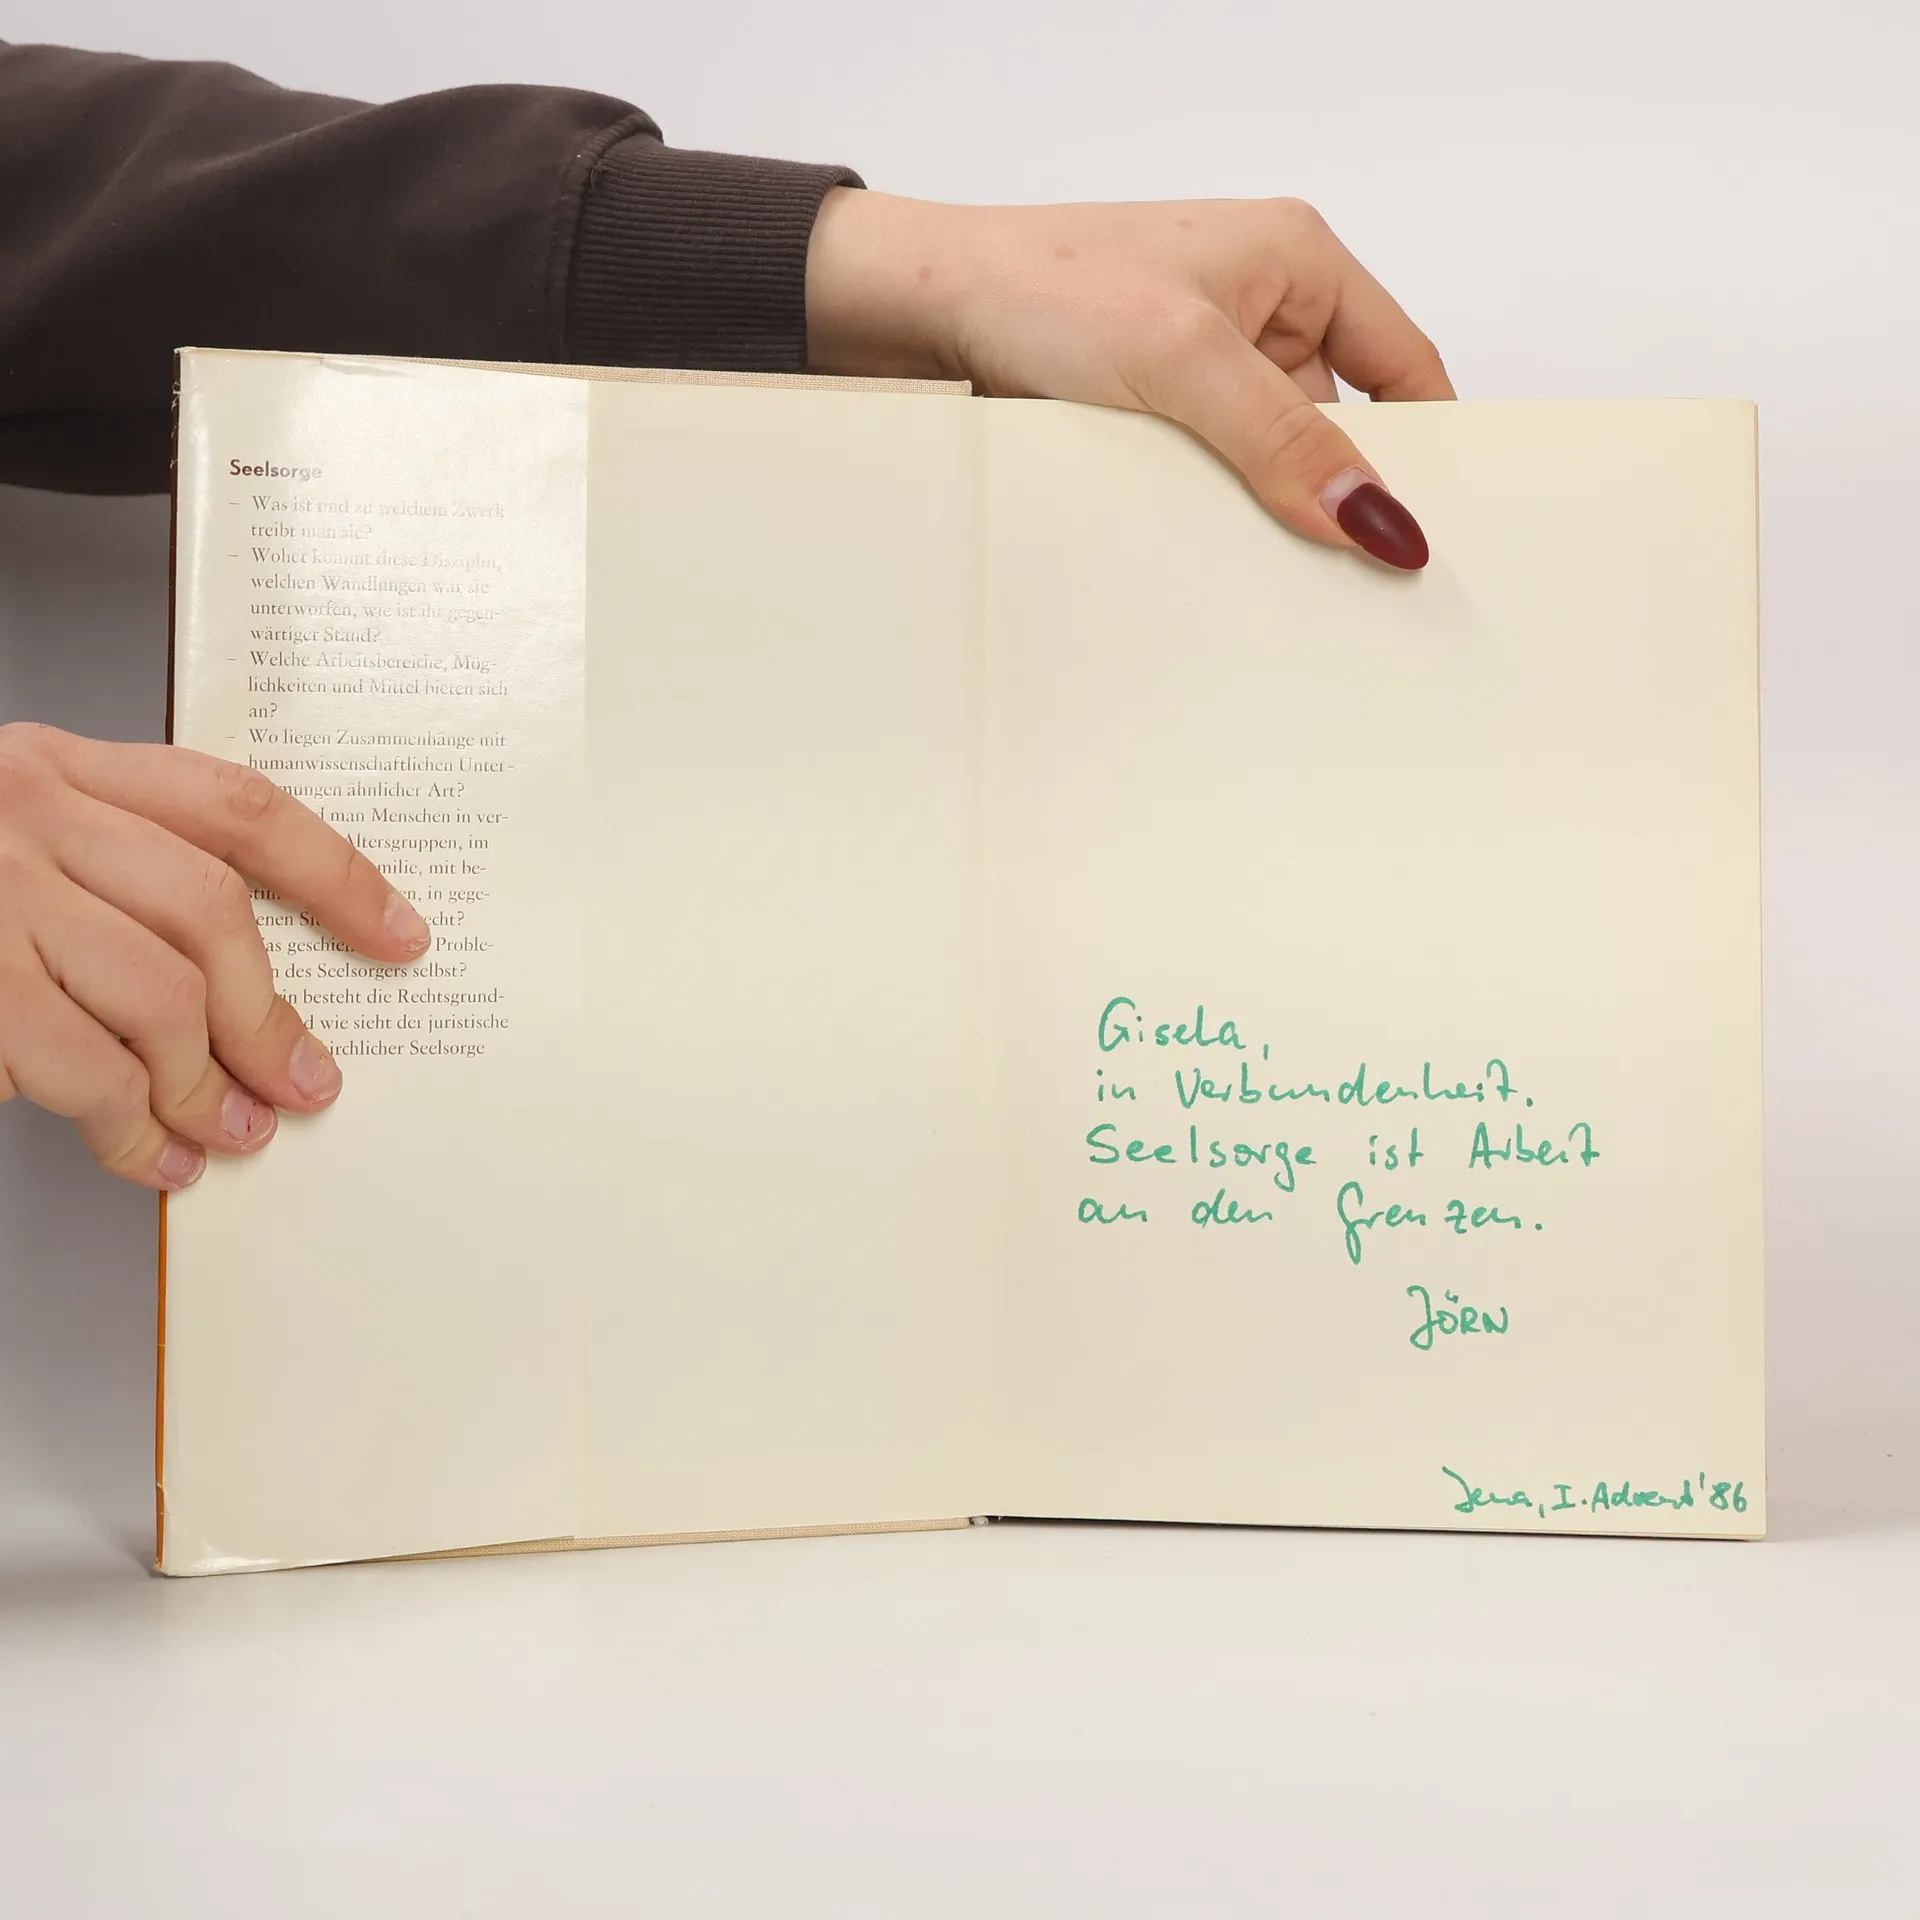 Seelsorge
– Was ist und zu welchem Zweck
treibt man sie?
– Woher kommt diese Disziplin,
welchen Wandlungen war sie
unterworfen, wie ist ihr gegen-
wärtiger Stand?
– Welche Arbeitsbereiche, Mög-
lichkeiten und Mittel bieten sich
an?
– Wo liegen Zusammenhänge mit
humanwissenschaftlichen Unter-
mungen ähnlicher Art?
man Menschen in ver-
Altersgruppen, im
milie, mit be-
in gege-
enen
echt?
Proble-
des Seelsorgers selbst?
besteht die Rechtsgrund-
wie sieht der juristische
irchlicher Seelsorge
Gisela,
in Verbundenheit.
Seelsorge ist Arbeit
an den Grenzen.
JÖRN
Jena, I. Advent '86